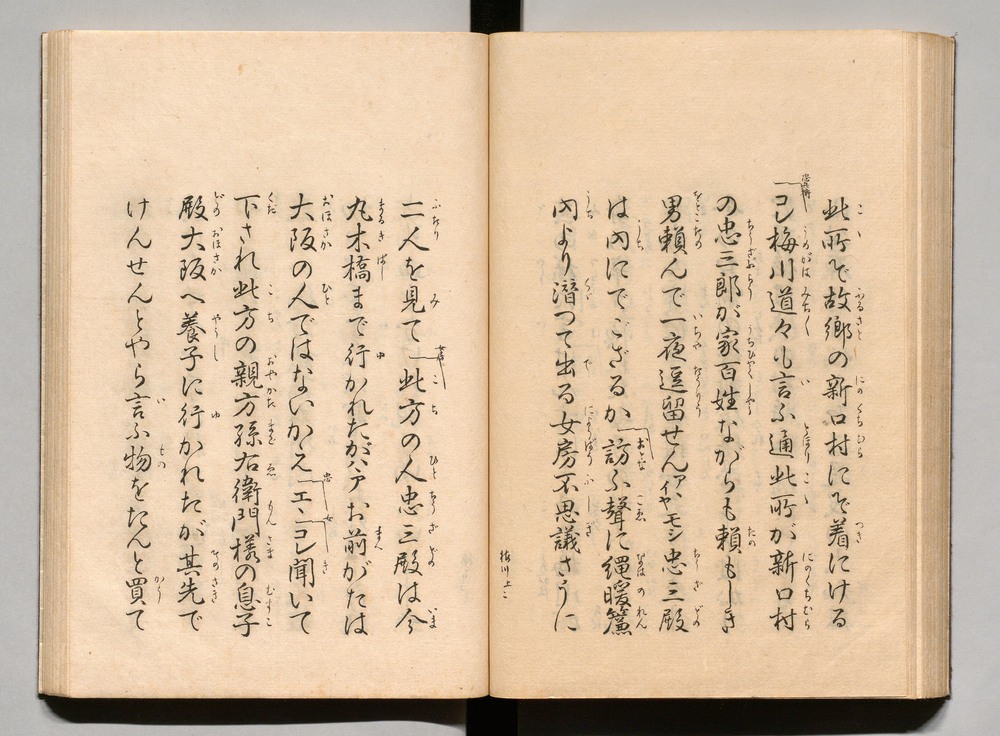 此所で故郷の新口村にぞ着にける
「コレ梅川道々も言ふ通此所が新口村
の忠三郎が家百姓ながらも頼もしき
男頼んで一夜逗留せんアヽイヤモシ忠三殿
は内にでござるか「訪ふ聲に縄暖簾
内より潜つて出る女房不思議さうに
梅川 上二
二人を見て「此方の人忠三殿は今
丸木橋まで行かれたがハアお前がたは
大阪の人ではないかえ「エヽ「コレ聞いて
下され此方の親方孫右衛門様の息子
殿大阪へ養子に行かれたが其先で
けんせんとやら言ふ物をたんと買て